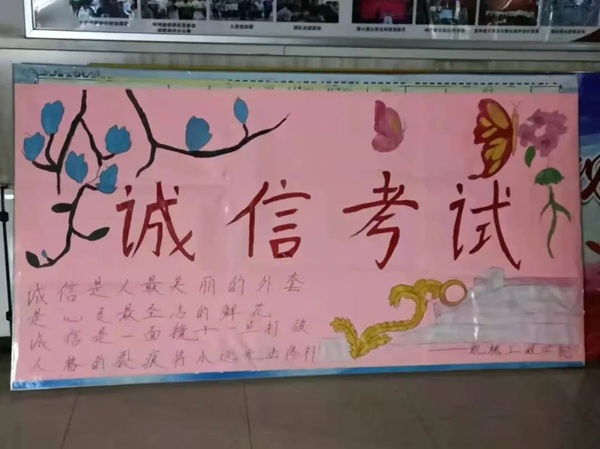 诚信考试
诚信是人最美丽的外套
是心灵最圣洁的鲜花
诚信是一面镜子一旦打破
人格的裂痕将永远无法修补